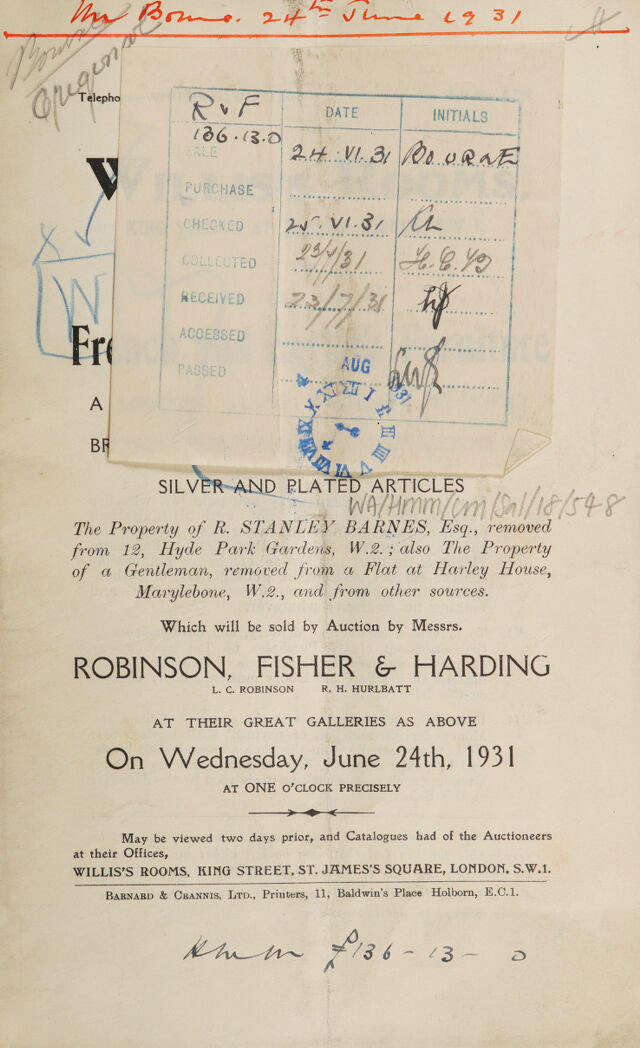 Mr Bourne. 24th June 1931
Bourne
Original
Telepho
R v F
DATE
INITIALS
136.13.0
SALE
24.VI.31
BOURNE
PURCHASE
CHECKED
25.VI.31
KL
COLLECTED
H.C.
RECEIVED
23/7/31
ACCESSED
PASSED
AUG
1931
I II III IV V VI VII VIII IX X XI XII
W
X
W
Fre
A
BR
SILVER AND PLATED ARTICLES
WA/HMM/CM/Sal/18/548
The Property of R. STANLEY BARNES, Esq., removed
from 12, Hyde Park Gardens, W.2.; also The Property
of a Gentleman, removed from a Flat at Harley House,
Marylebone, W.2., and from other sources.
Which will be sold by Auction by Messrs.
ROBINSON, FISHER & HARDING
L. C. ROBINSON R. H. HURLBATT
AT THEIR GREAT GALLERIES AS ABOVE
On Wednesday, June 24th, 1931
AT ONE O'CLOCK PRECISELY
May be viewed two days prior, and Catalogues had of the Auctioneers
at their Offices,
WILLIS'S ROOMS, KING STREET, ST. JAMES'S SQUARE, LONDON, S.W.1.
BARNARD & CRANNIS, LTD., Printers, 11, Baldwin's Place Holborn, E.C.1.
£136-13-0